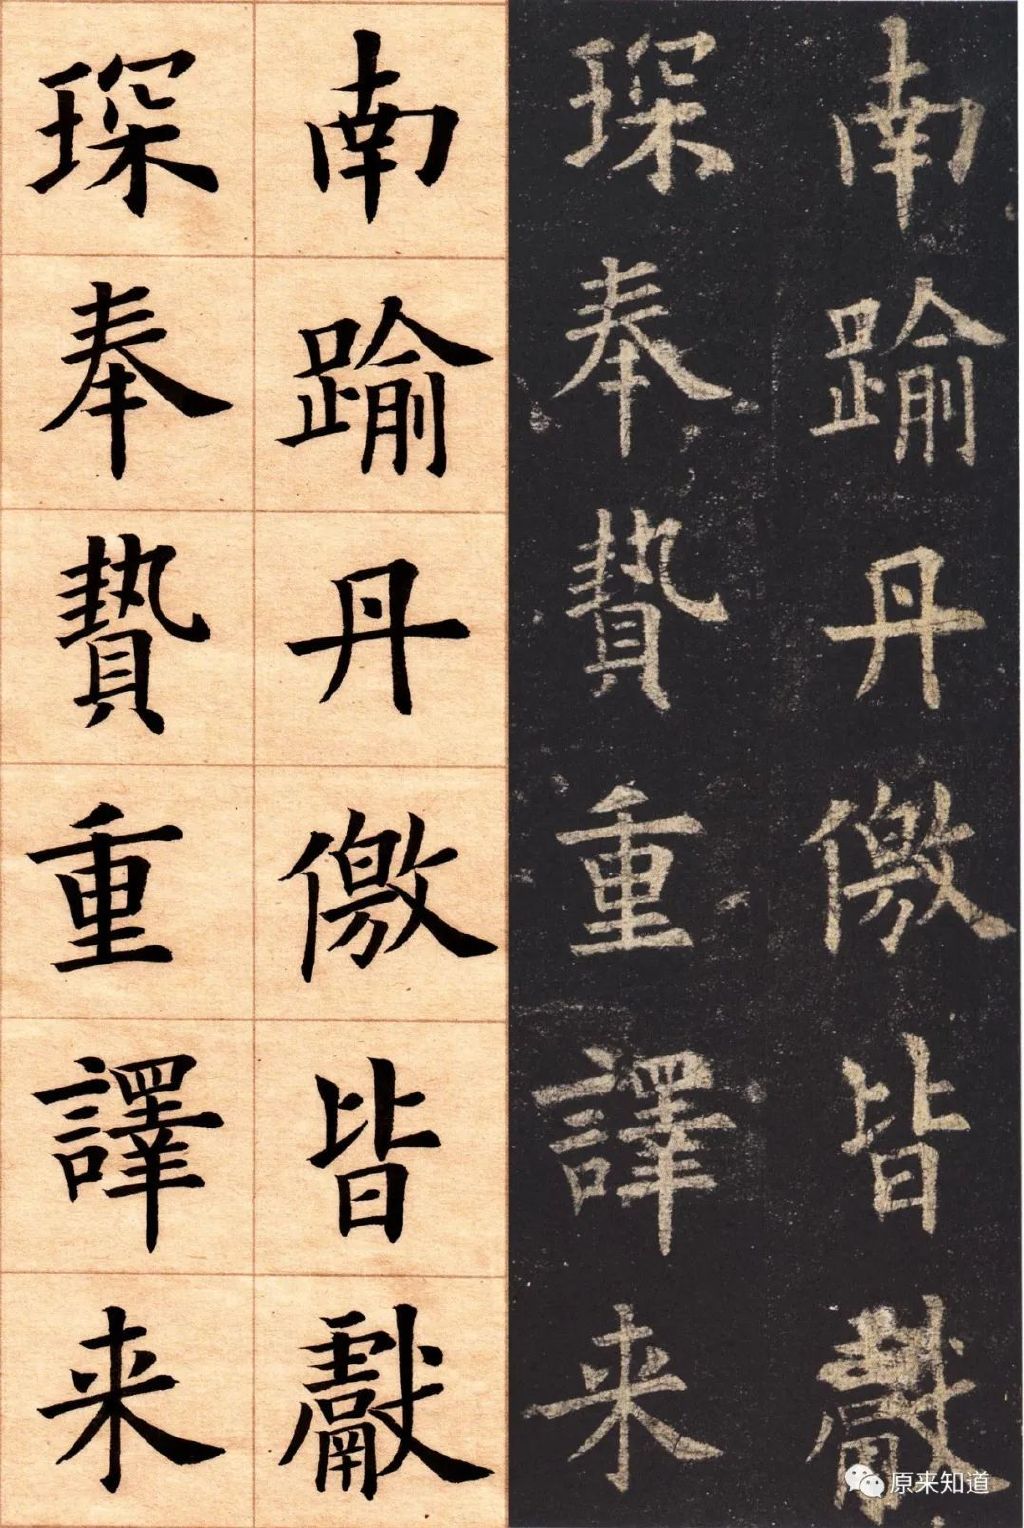 南踰丹僥皆獻
琛奉贄重譯来
南踰丹僥皆獻
琛奉贄重譯来
原来知道